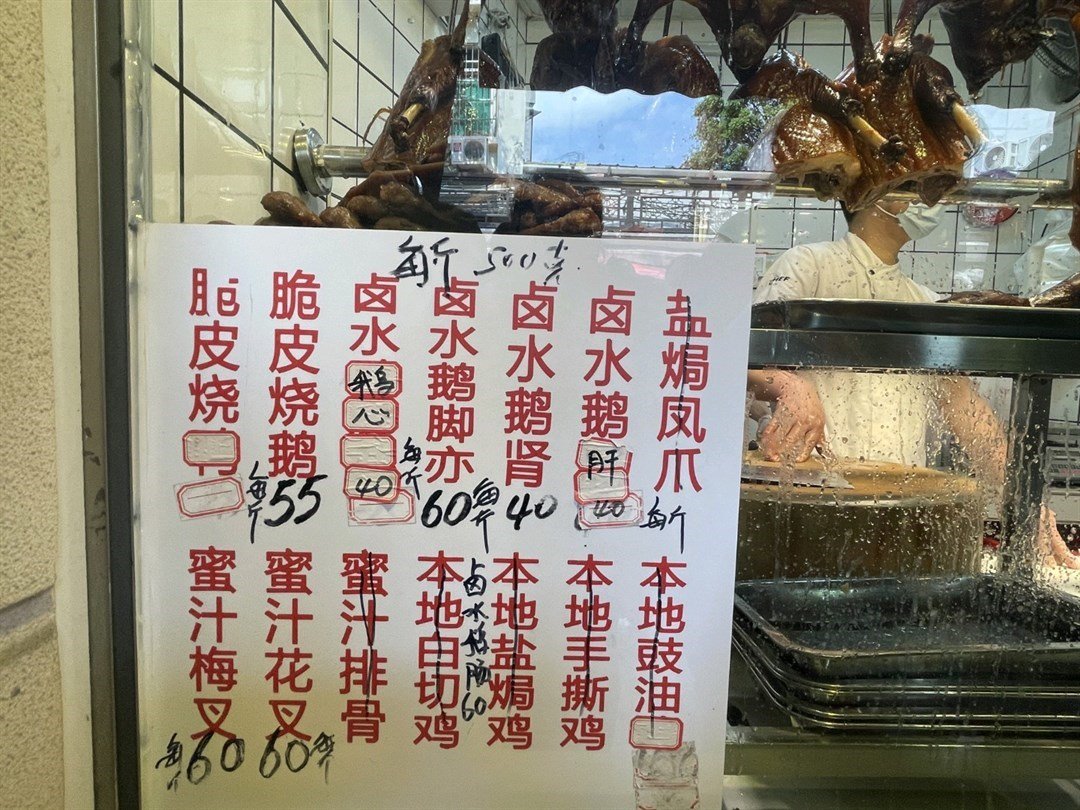 每斤 500克
脆皮烧
脆皮烧鹅
每斤 55
卤水鹅心
40
卤水鹅脚亦
每斤 60
卤水鹅肾
每斤 40
卤水鹅肝
40
盐焗凤爪
每斤
蜜汁梅叉
每斤 60
蜜汁花叉
60 每斤
蜜汁排骨
本地白切鸡
卤水鹅肠 60
本地盐焗鸡
本地手撕鸡
本地豉油